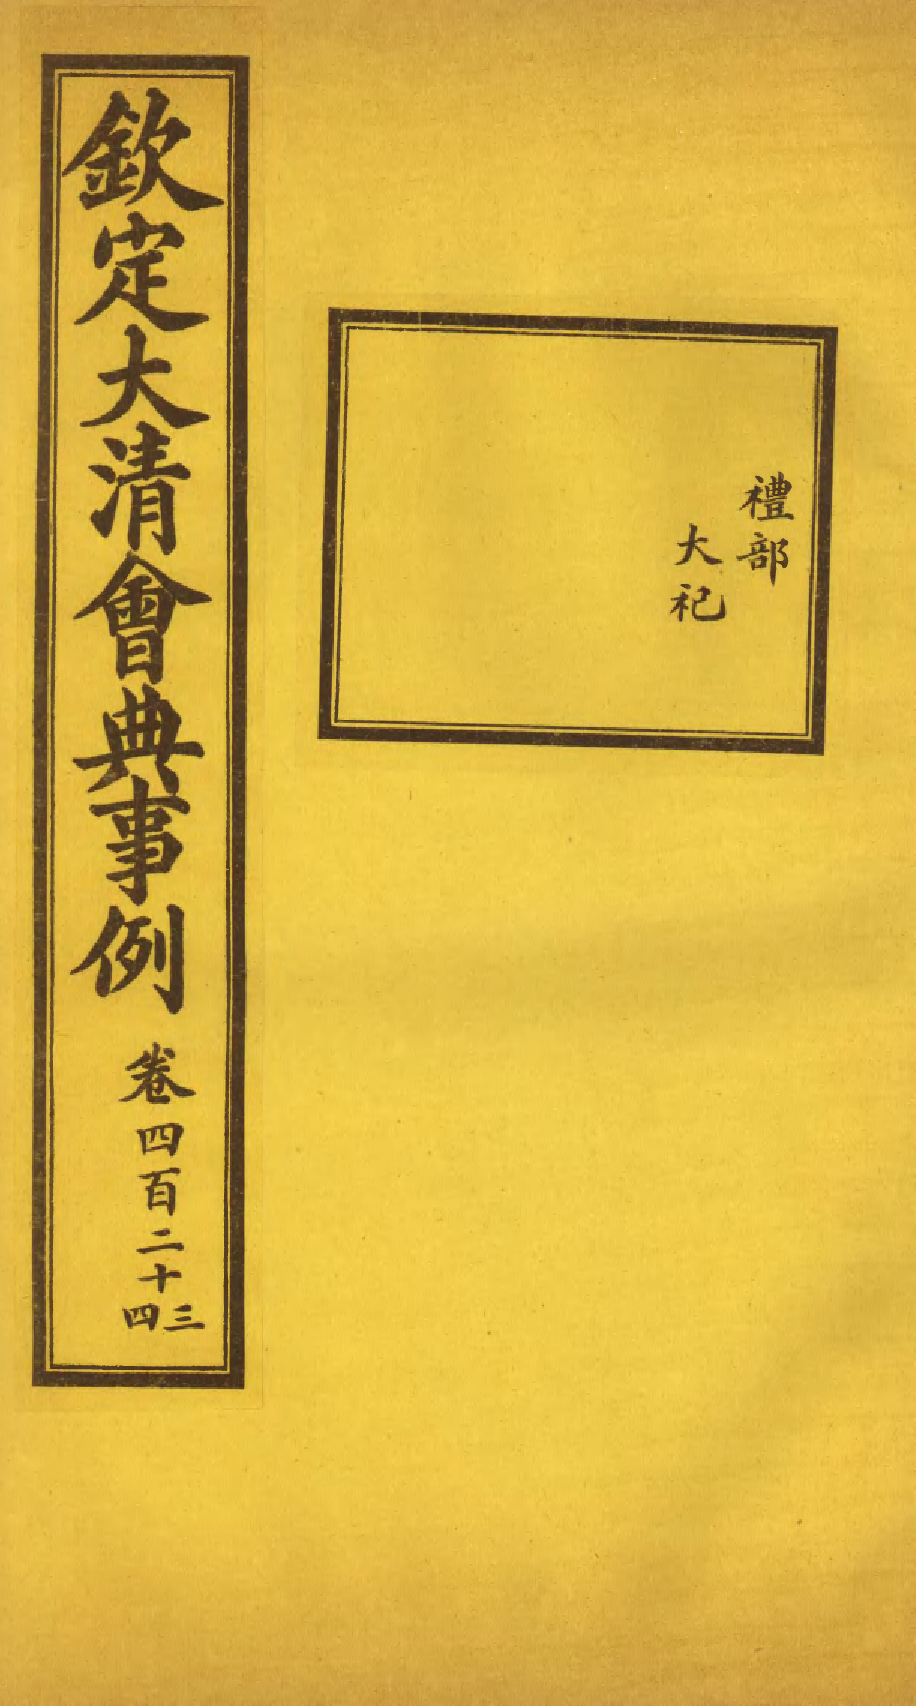 欽定大清會典事例 卷四百二十三四
禮部
大祀